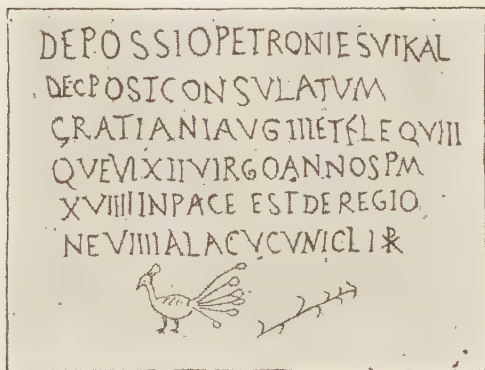 DEPOSSIO PETRONIES VI KAL
DEC POST CONSULATUM
GRATIANI AVG III ET FL EQVIII
QVE VIXII VIRGO ANNOS PM
XVIIII IN PACE EST DE REGIO
NE VIIII A LACV CVNICLI ☧